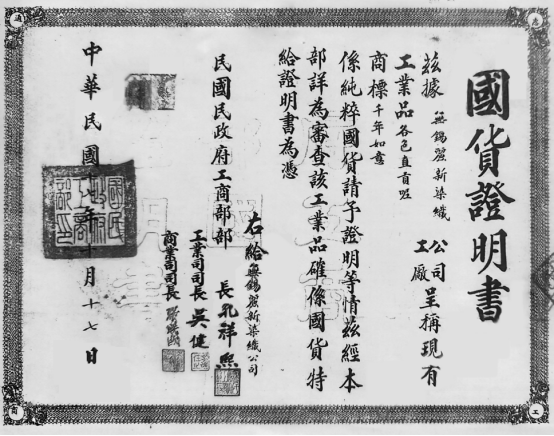 國貨證明書
茲據無錫麗新染織公司工廠呈稱現有
工業品各色直貢呢
商標千年如意
係純粹國貨請予證明等情茲經本
部詳為審查該工業品確係國貨特
給證明書為憑
右給無錫麗新染織公司
國民政府工商部部長孔祥熙
工業司司長吳健
商業司司長
中華民國 年十月十七日